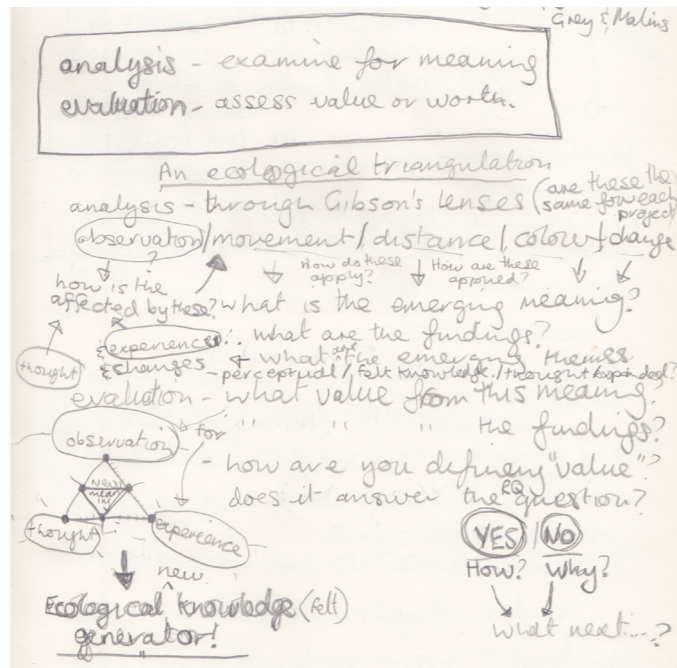 Grey & Malins
analysis - examine for meaning
evaluation - assess value or worth.
An ecological triangulation
analysis - through Gibson's lenses (are these the
same for each
project
observation / movement / distance / colour + change
?
How do these
apply?
How are these
applied?
how is the
affected by these?
what is the emerging meaning?
& experience
∴ what are the findings?
thought
& changes
what are the emerging themes
- perceptual / felt knowledge / thought expanded?
evaluation - what value from this meaning?
" " " the findings?
observation
for
- how are you defining "value"?
new
mean
ing
does it answer the RQ question?
thought
experience
YES / NO
How? Why?
new
Ecological knowledge (felt)
generator!
what next....?